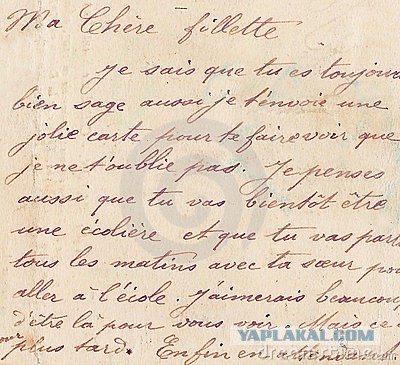 Ma Chère fillette
Je sais que tu es toujours
bien sage aussi je t'envoie une
jolie carte pour te faire voir que
je ne t'oublie pas. Je penses
aussi que tu vas bientôt être
une écolière et que tu vas part
tous les matins avec ta sœur pou
aller à l'école. J'aimerais beaucou
d'être là pour vous voir. Mais ce
plus tard. Enfin en attendant
YAPLAKAL.COM